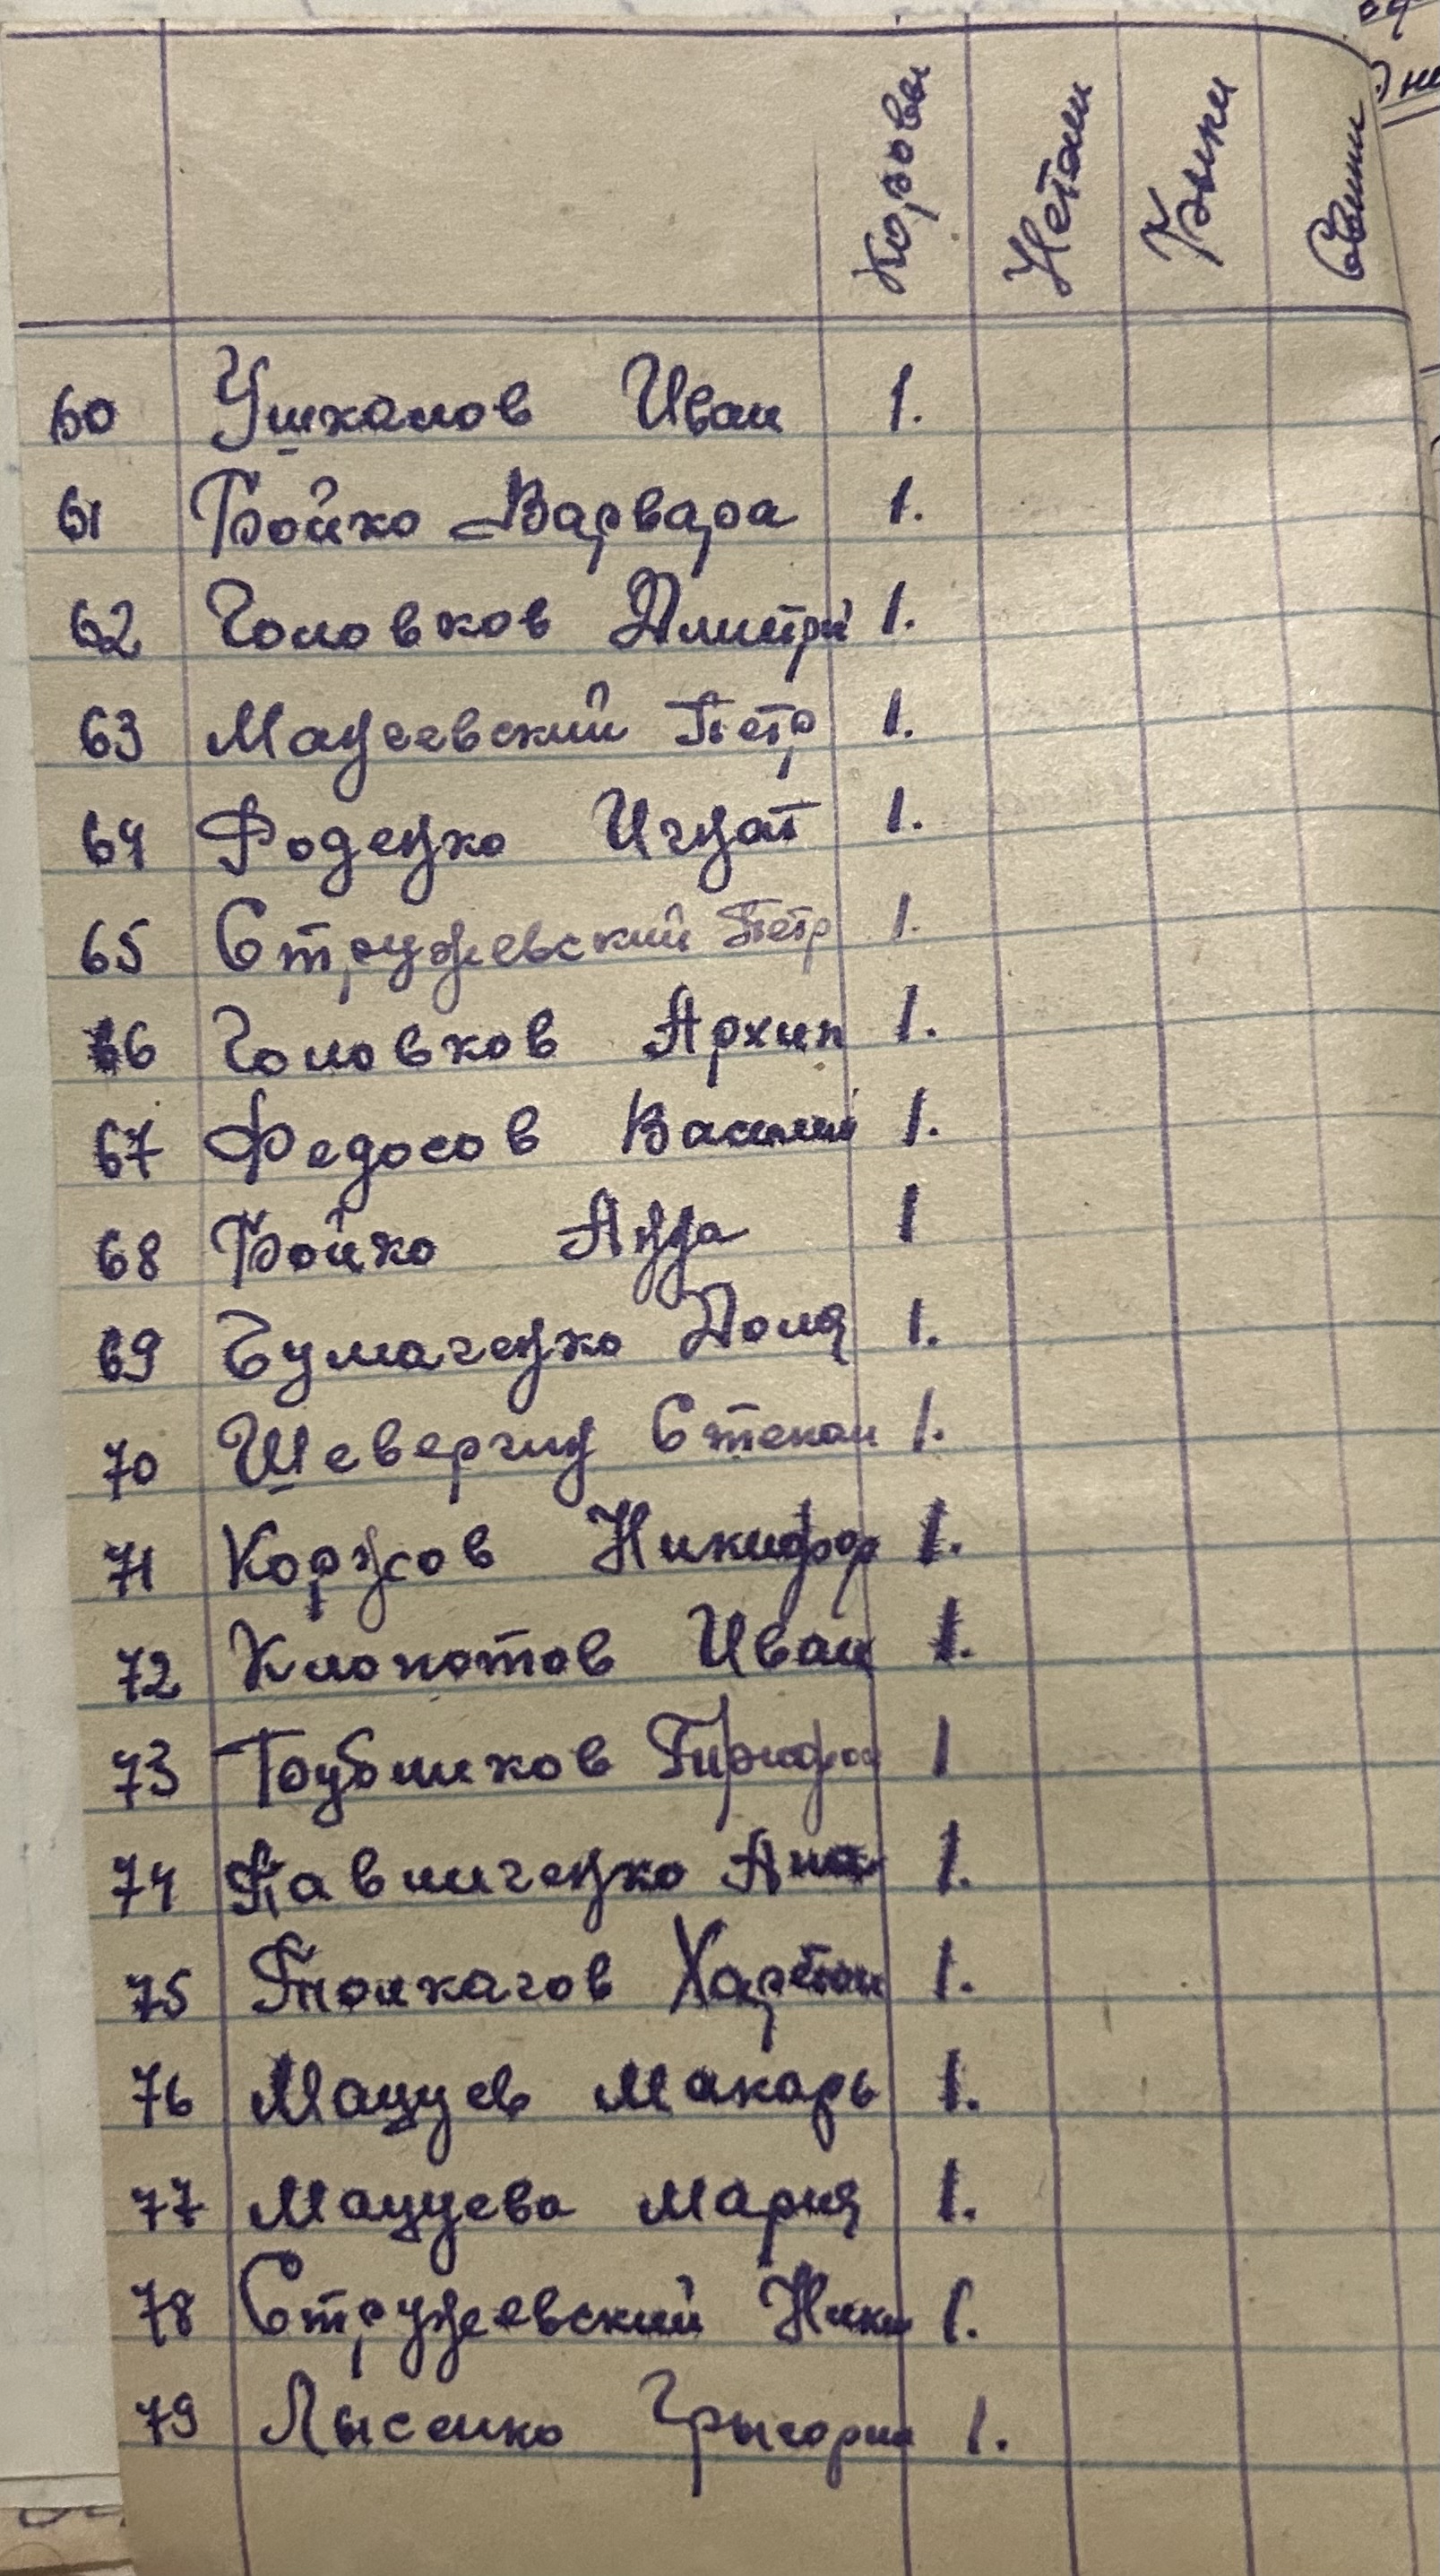 Коровы Нетели Быки Свиньи
60 Ушкалов Иван 1.
61 Бойко Варвара 1.
62 Головков Дмитрий 1.
63 Мацеевский Петр 1.
64 Роденко Игнат 1.
65 Стружевский Петр 1.
66 Головков Архип 1.
67 Федосов Василий 1.
68 Бойко Анна 1
69 Чумаченко Доля 1.
70 Шеверчин Степан 1.
71 Коржов Никифор 1.
72 Клопотов Иван 1.
73 Голубников 1
74 Павличенко Анна 1.
75 Толкачов Харитон 1.
76 Мацуев Макарь 1.
77 Мацуева Мария 1.
78 Стружевский Ники 1.
79 Лысенко Грыгорий 1.